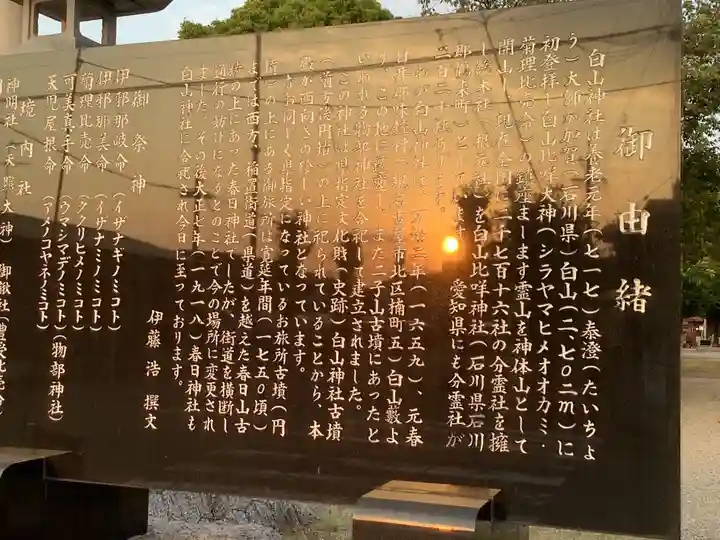 御由緒
白山神社は養老元年(七一七)泰澄(たいちょ
う)大師が加賀(石川県)白山(二、七〇二m)に
初登拝し白山比咩大神(シラヤマヒメオオカミ・
菊理比売命)の鎮座まします霊山を神体山として
開山し現在全国に二千七百十六社の分霊社を擁
し総本社(根元社)を白山比咩神社(石川県石川
郡鶴来町)として 愛知県にも分霊社が
二百二十
の白山神社は、万治二年(一六五九)、元春
日井郡味鋺村(現名古屋市北区楠町五)白山藪よ
りこの地に遷座し、また二子山古墳にあったと
いわれる物部神社を合祀して建立されました。
この神社は市指定文化財(史跡)白山神社古墳
(前方後円墳)の上に祀られていることから、本
殿が西向きの珍しい神社となっています。
お同じく市指定になっているお旅所古墳(円
墳)の上にある御旅所は寛延年間(一七五〇頃)
よりは西方、稲置街道(県道)を越えた春日山古
墳の上にあった春日神社でしたが、街道を横断し
通行の妨げになるとのことで今の場所に変更され
ました。その後大正七年(一九一八)春日神社も
白山神社に合祀され今日に至っております。
伊藤浩 撰文
御祭神
伊邪那岐命(イザナギノミコト)
伊邪那美命(イザナミノミコト)
菊理比売命(ククリヒメノミコト)
可美真手命(ウマシマデノミコト)(物部神社)
天児屋根命(アメノコヤネノミコト)
境内社
神明社(天照大神) 御鍬社(豊受比売命)